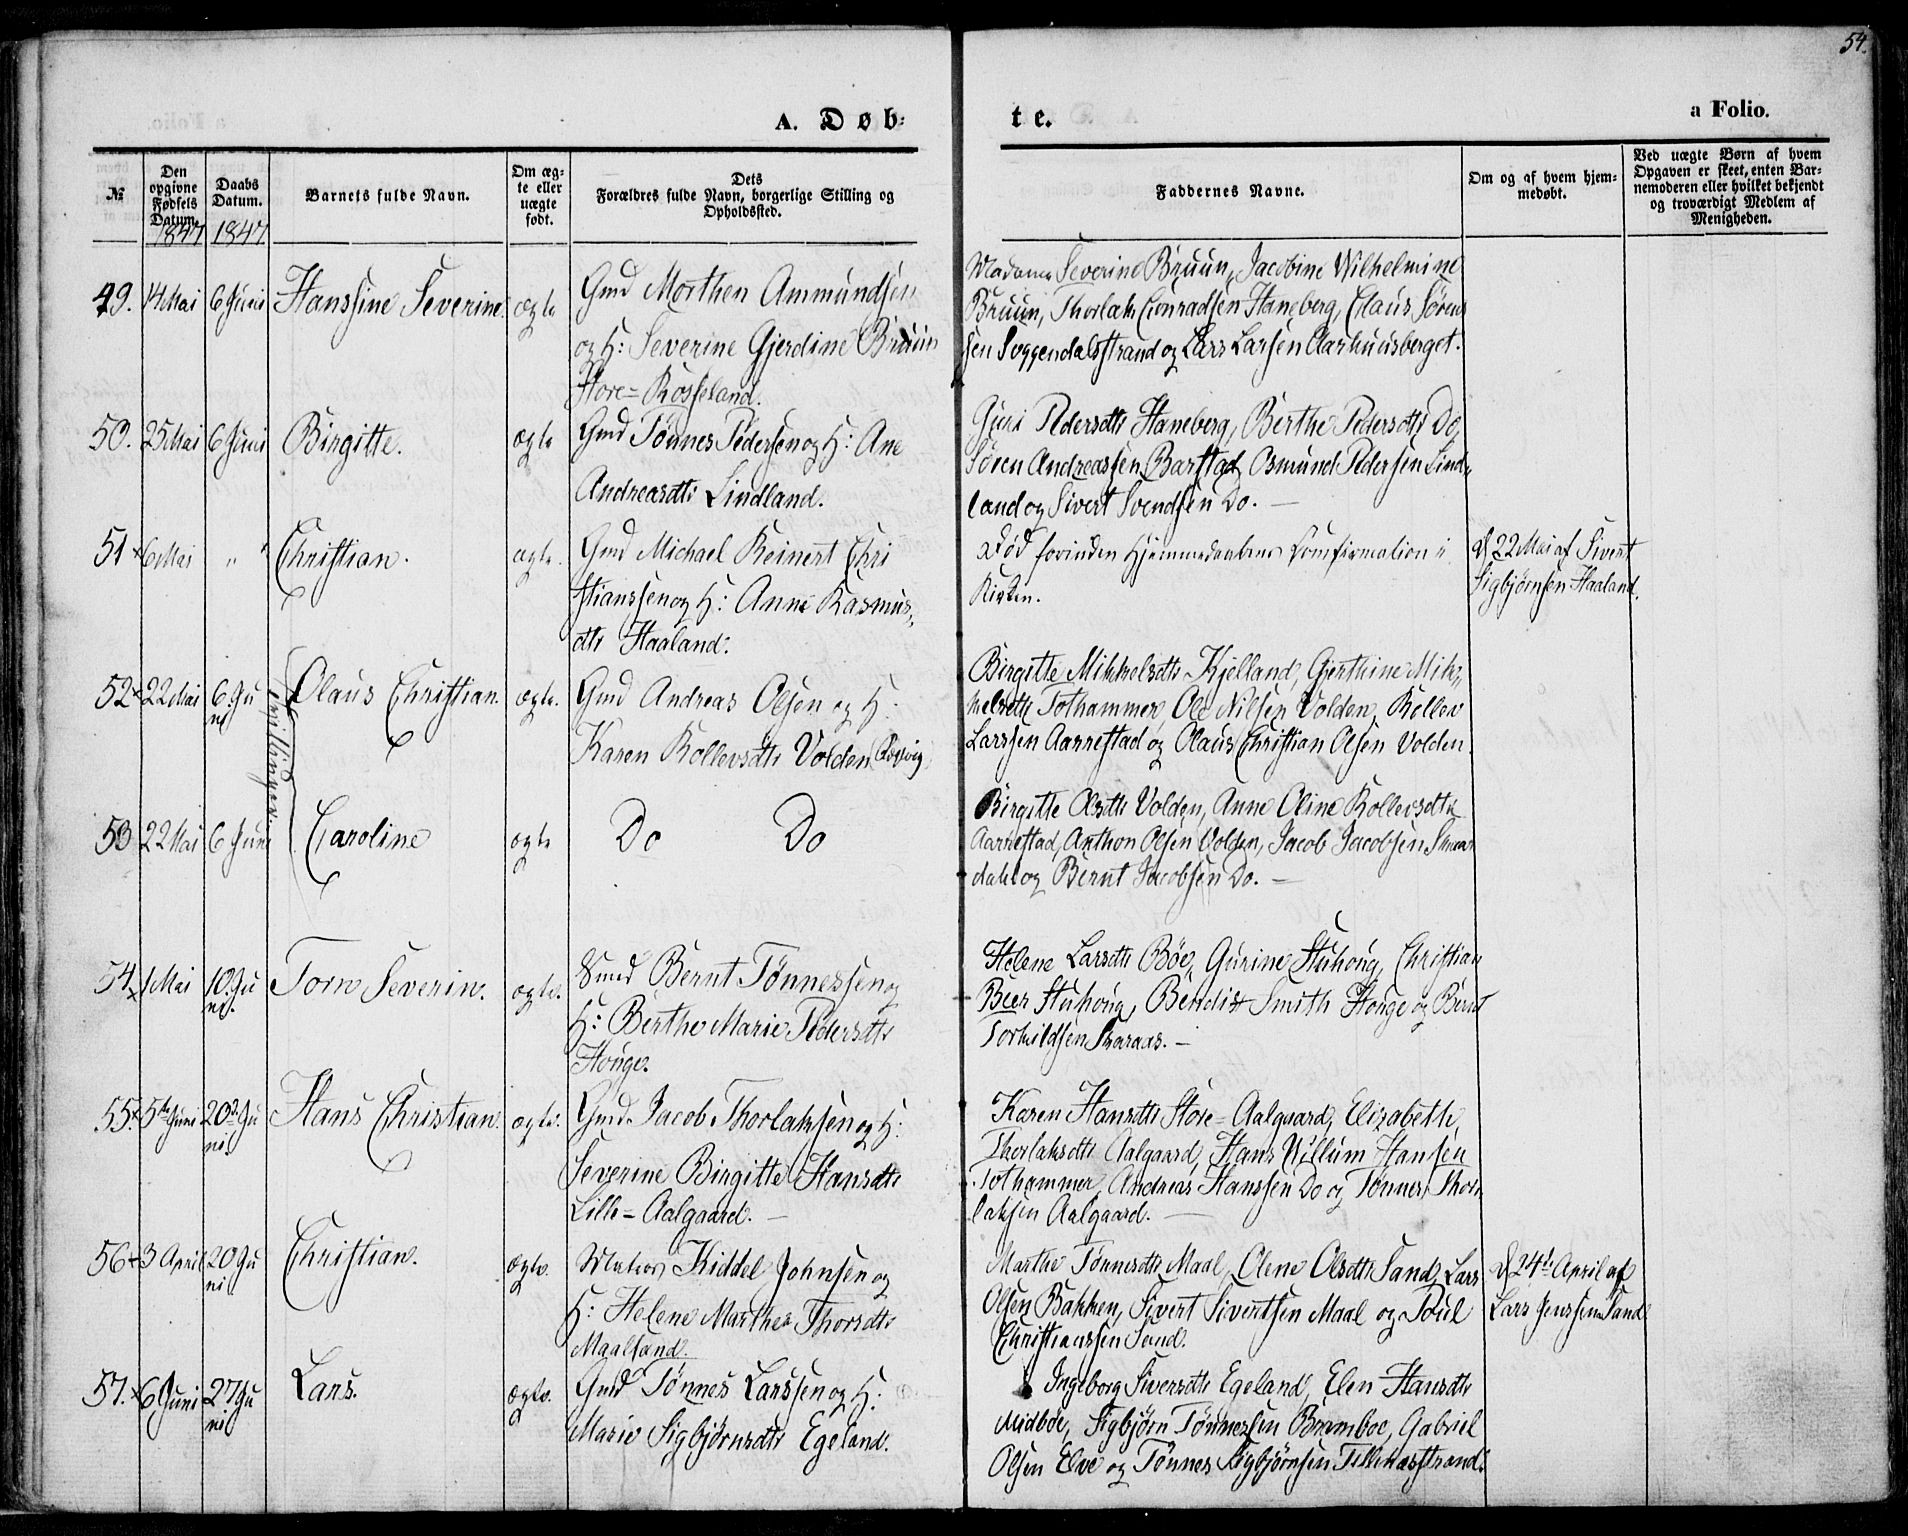 54.
A. Døb-
te.
a Folio.
№
Den opgivne Fødsels Datum.
1847
Daabs Datum.
1847
Barnets fulde Navn.
Om ægte eller uægte født.
Dets
Forældres fulde Navn, borgerlige Stilling og
Opholdssted.
Faddernes Navne.
Om og af hvem hjem-
medøbt.
Ved uægte Børn af hvem
Opgaven er skeet, enten Bar-
nemoderen eller hvilket bekjendt
og troværdigt Medlem af
Menigheden.
49. 14 Mai 6 Juni Hanssine Severine ægte
Gmd Morthen Ammundsen
og H: Severine Gjerdine Bruun
Store-Rosseland.
Madame Severine Bruun, Jacobine Wilhelmine
Bruun, Thorlak Conradsen Haneberg, Claus Søren
sen Soggendalsstrand og Lars Larsen Aarhuusberget.
50. 25 Mai 6 Juni Birgitte. ægte
Gmd Tønnes Pedersen og H: Ane
Andreasdtr Lindland.
Guri Pedersdtr Haneberg, Berthe Pedersdtr Do,
Søren Andreassen Barstad, Osmund Pedersen Lind-
land og Sivert Svendsen Do. —
51 x 6 Mai " " Christian. ægte.
Gmd Michael Reinert Chri
stianssen og H: Anne Rasmus-
dtr Haaland.
Død forinden Hjemmedaabens Comfirmation i
Kirken.
d 22 Mai af Sivert
Sigbjørnsen Haaland.
52 x 22 Mai 6 Ju
ni
Olaus Christian. ægte.
Tvillinger.
Gmd Andreas Olsen og H:
Karen Rollevsdtr Volden (Rovig)
Birgitte Mikkelsdtr Kjelland, Gjerthine Mik-
kelsdtr Tothammer, Ole Nilsen Volden, Rollev
Larssen Aarrestad og Olaus Christian Olsen Volden.
53 22 Mai 6 Juni Caroline ægte
Do Do
Birgitte Olsdtr Volden, Anne Oline Rollevsdtr
Aarrestad, Anthon Olsen Volden, Jacob Jacobsen
dahl og Bernt Jacobsen Do. —
54 x 1 Mai 10 Ju
ni.
Torn Severin. ægte.
Bernt Tønnessen og
H: Berthe Marie Pedersdtr
Houge.
Helene Larsdtr Bøe, Gurine Stuhoug, Christian
Beer Stuhoug, Bendix Smith Houge og Bernt
Torkildsen Skaraas. —
55. x 5te Juni 20de Ju
ni.
Hans Christian. ægte.
Gmd. Jacob Thorlaksen og H:
Severine Birgitte Hansdtr
Lille-Aalgaard. —
Karen Hansdtr Store-Aalgaard, Elizabeth
Thorlaksdtr Aalgaard, Hans Willum Hansen
Tothammer, Andreas Hanssen Do og Tønnes Thor
laksen Aalgaard. —
56 x 3 April 20 Ju
ni
Christian. ægte.
Kiddel Johnsen og
H: Helene Marthea Thorsdtr
Maalsand.
Marthe Tønnesdtr Maal, Olene Olsdtr Sand, Lars
Olsen Bakken, Sivert Sivertsen Maal og Poul
Christianssen Sand.
d 24de April af
Lars Jenssen Sand
57. x 6 Juni 27 Ju
ni
Lars. ægte.
Gmd Tønnes Larssen og H:
Marie Sigbjørnsdtr Egeland.
Ingeborg Siversdtr Egeland, Elen Hansdtr
Midbøe, Sigbjørn Tønnesen Brombøe, Gabriel
Olsen Elve og Tønnes Sigbjørnsen Tellenæsstrand.